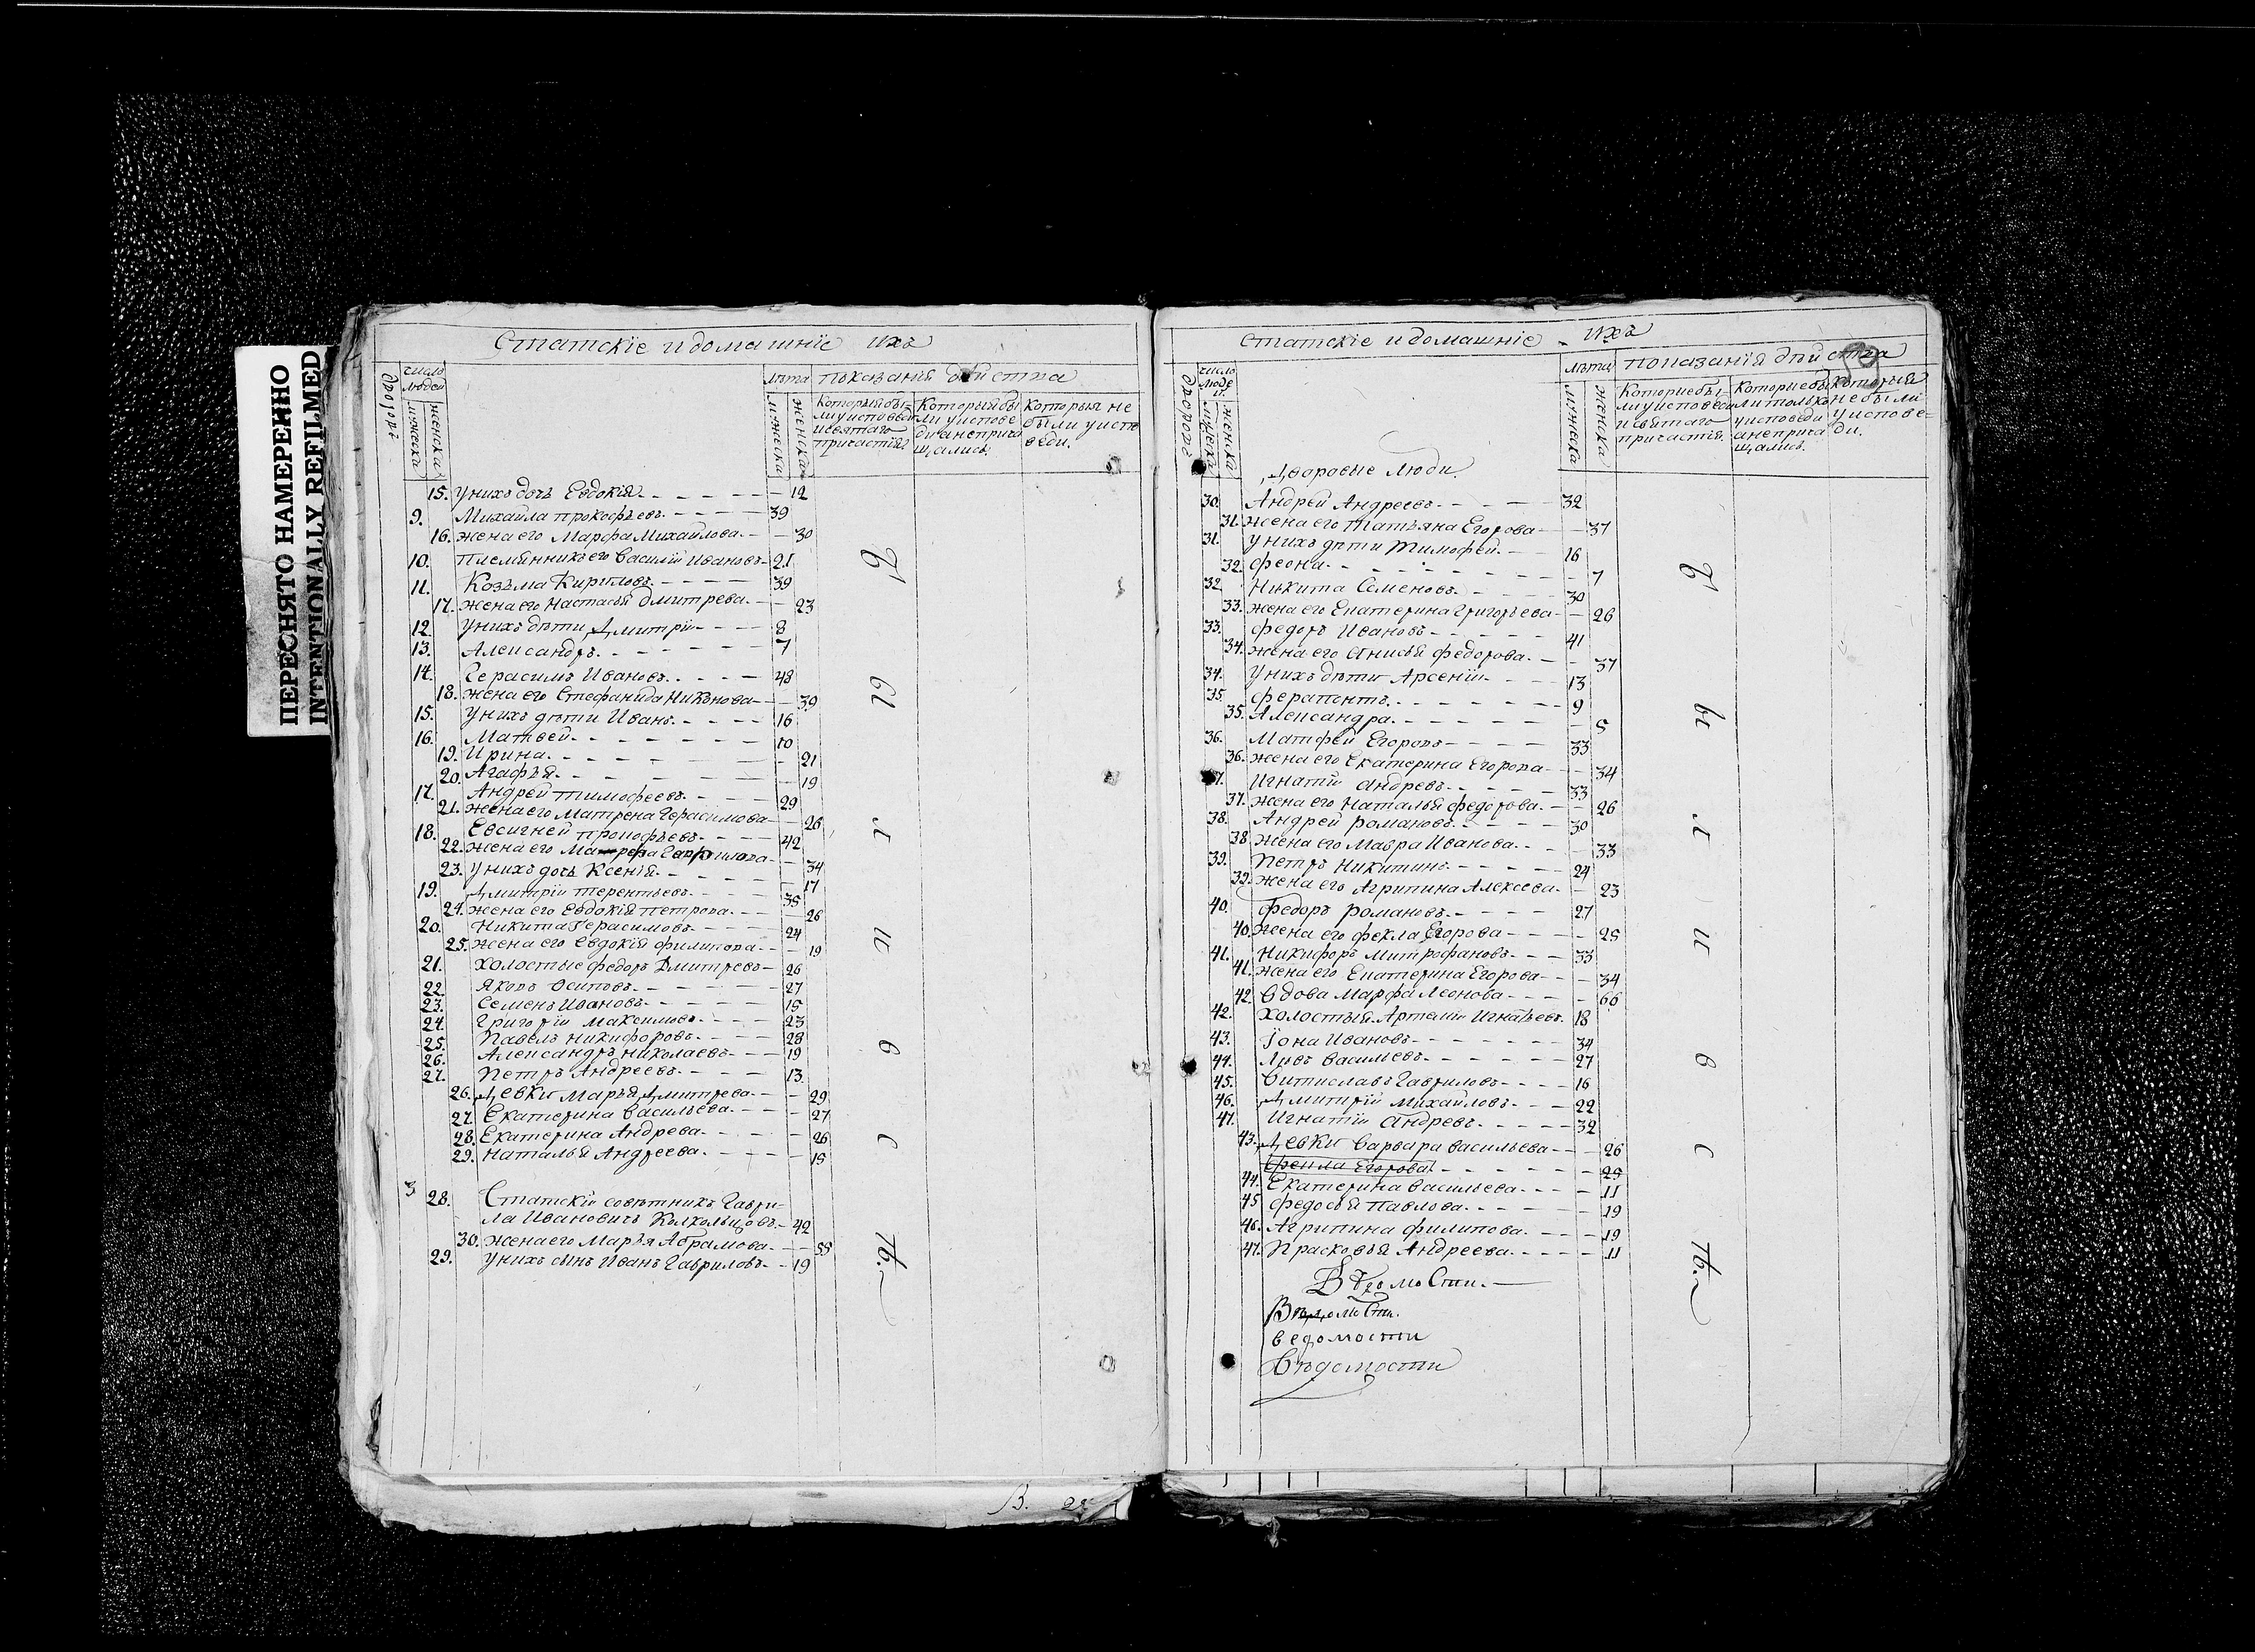 ПЕРЕСНЯТО НАМЕРЕННО
INTENTIONALLY REFILMED
Статскіе и домашніе ихъ
число людей
лѣта показанія дѣйства
дворовъ
мужеска
женска
мужеска
женска
которыя были у исповеди и святаго причастія
которыя были у исповеди а непричащались
которыя не были у исповеди.
15. у нихъ дочь Евдокія - 12
9. Михайла прокофьевъ - 39
16. жена его Марфа Михайлова - 30
10. племянникъ его василій ивановъ 21
11. Козьма Кириловъ 39
17. жена его Настасья Дмитрева 23
12. у нихъ дѣти Дмитрій 8
13. Александръ 7
14. Герасимъ Ивановъ 48
18. жена его Стефанида Никонова 39
15. у нихъ дѣти Иванъ 16
16. Матвей 10
19. Ирина 21
20. Агафья 19
17. Андрей тимофеевъ 29
21. жена его Матрена Герасимова 26
18. Евсигней прокофьевъ 42
22. жена его Гаврилова 34
23. у нихъ дочь Ксенія 17
19. Дмитрій терентьевъ 35
24. жена его Евдокія петрова 26
20. Никита Герасимовъ 24
25. жена его евдокія филипова 19
21. холостые федоръ Дмитревъ 26
22. яковъ осиповъ 27
23. семенъ Ивановъ 15
24. Григорій максимовъ 23
25. павелъ никифоровъ 28
26. Александръ николаевъ 19
27. петръ Андреевъ 13
26. Девки Марья Дмитрева 29
27. Екатерина васильева 27
28. Екатерина Андрева 26
29. Наталья Андреева 15
3 28. Статскій совѣтникъ Гаври-
ла Ивановичъ Колкольцовъ 42
30. жена его Марья Абрамова 55
29. у нихъ сынъ Иванъ Гавриловъ 19
Б ы л и в с ѣ.
Статскіе и домашніе ихъ
число людей
лѣта показанія дѣйства
дворовъ
мужеска
женска
мужеска
женска
которые были у исповеди и святаго причастія
которые были только у исповеди а непричащались
которыя не были у исповеди.
Дворовые люди
30. Андрей Андреевъ 32
31. жена его Татьяна Егорова 37
31. у нихъ дѣти тимофей 16
32. феона 7
32. Никита Семеновъ 30
33. жена его Екатерина Григорьева 26
33. федоръ Ивановъ 41
34. жена его анисья федорова 37
34. у нихъ дѣти Арсеній 13
35. ферапонтъ 9
35. Александра 5
36. Матфей Егоровъ 33
36. жена его Екатерина Егорова 34
37. Игнатій андревъ 33
37. жена его наталья федорова 26
38. Андрей романовъ 30
38. жена его Мавра Иванова 33
39. Петръ никитинъ 24
39. жена его Агрипина Алексеева 23
40. федоръ романовъ 27
40. жена его фекла Егорова 25
41. Никифоръ митрофановъ 33
41. жена его Екатерина Егорова 34
42. вдова марфа леонова 66
42. холостыя Артемій Игнатьевъ 18
43. Іона Ивановъ 34
44. Левъ васильевъ 27
45. Витиславъ Гавриловъ 16
46. Дмитрій михайловъ 22
47. Игнатіи андревъ 32
43. Девки варвара васильева 26
фекла Егорова 25
44. Екатерина васильева 11
45 федосья павлова 19
46. Агрипина филипова 19
47. Прасковья Андреева 11
Б ы л и в с ѣ.
Вѣдомости
ведомости
Вѣдомости